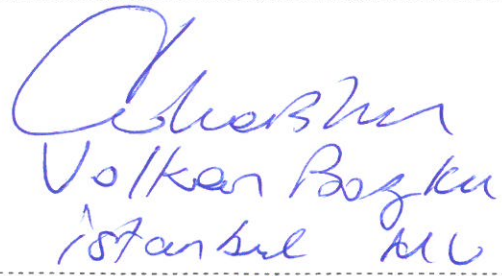 Volkan Bozkır
İstanbul MV